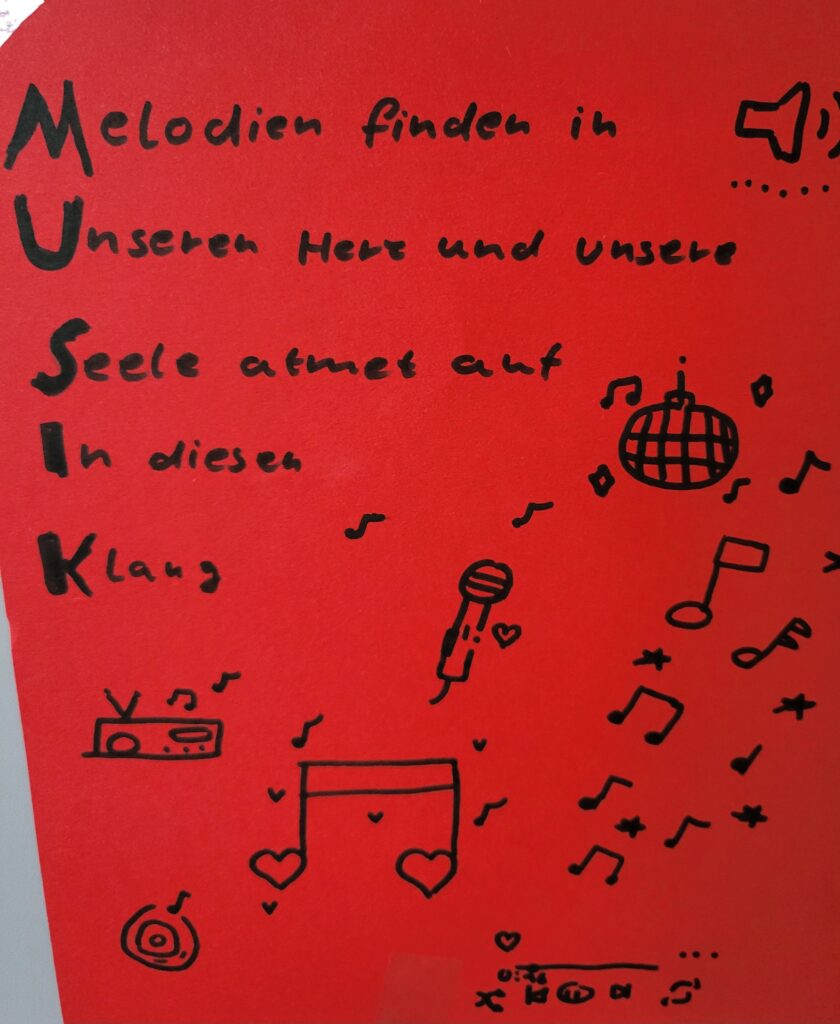 Melodien finden in
Unseren Herz und unsere
Seele atmet auf
In diesen
Klang